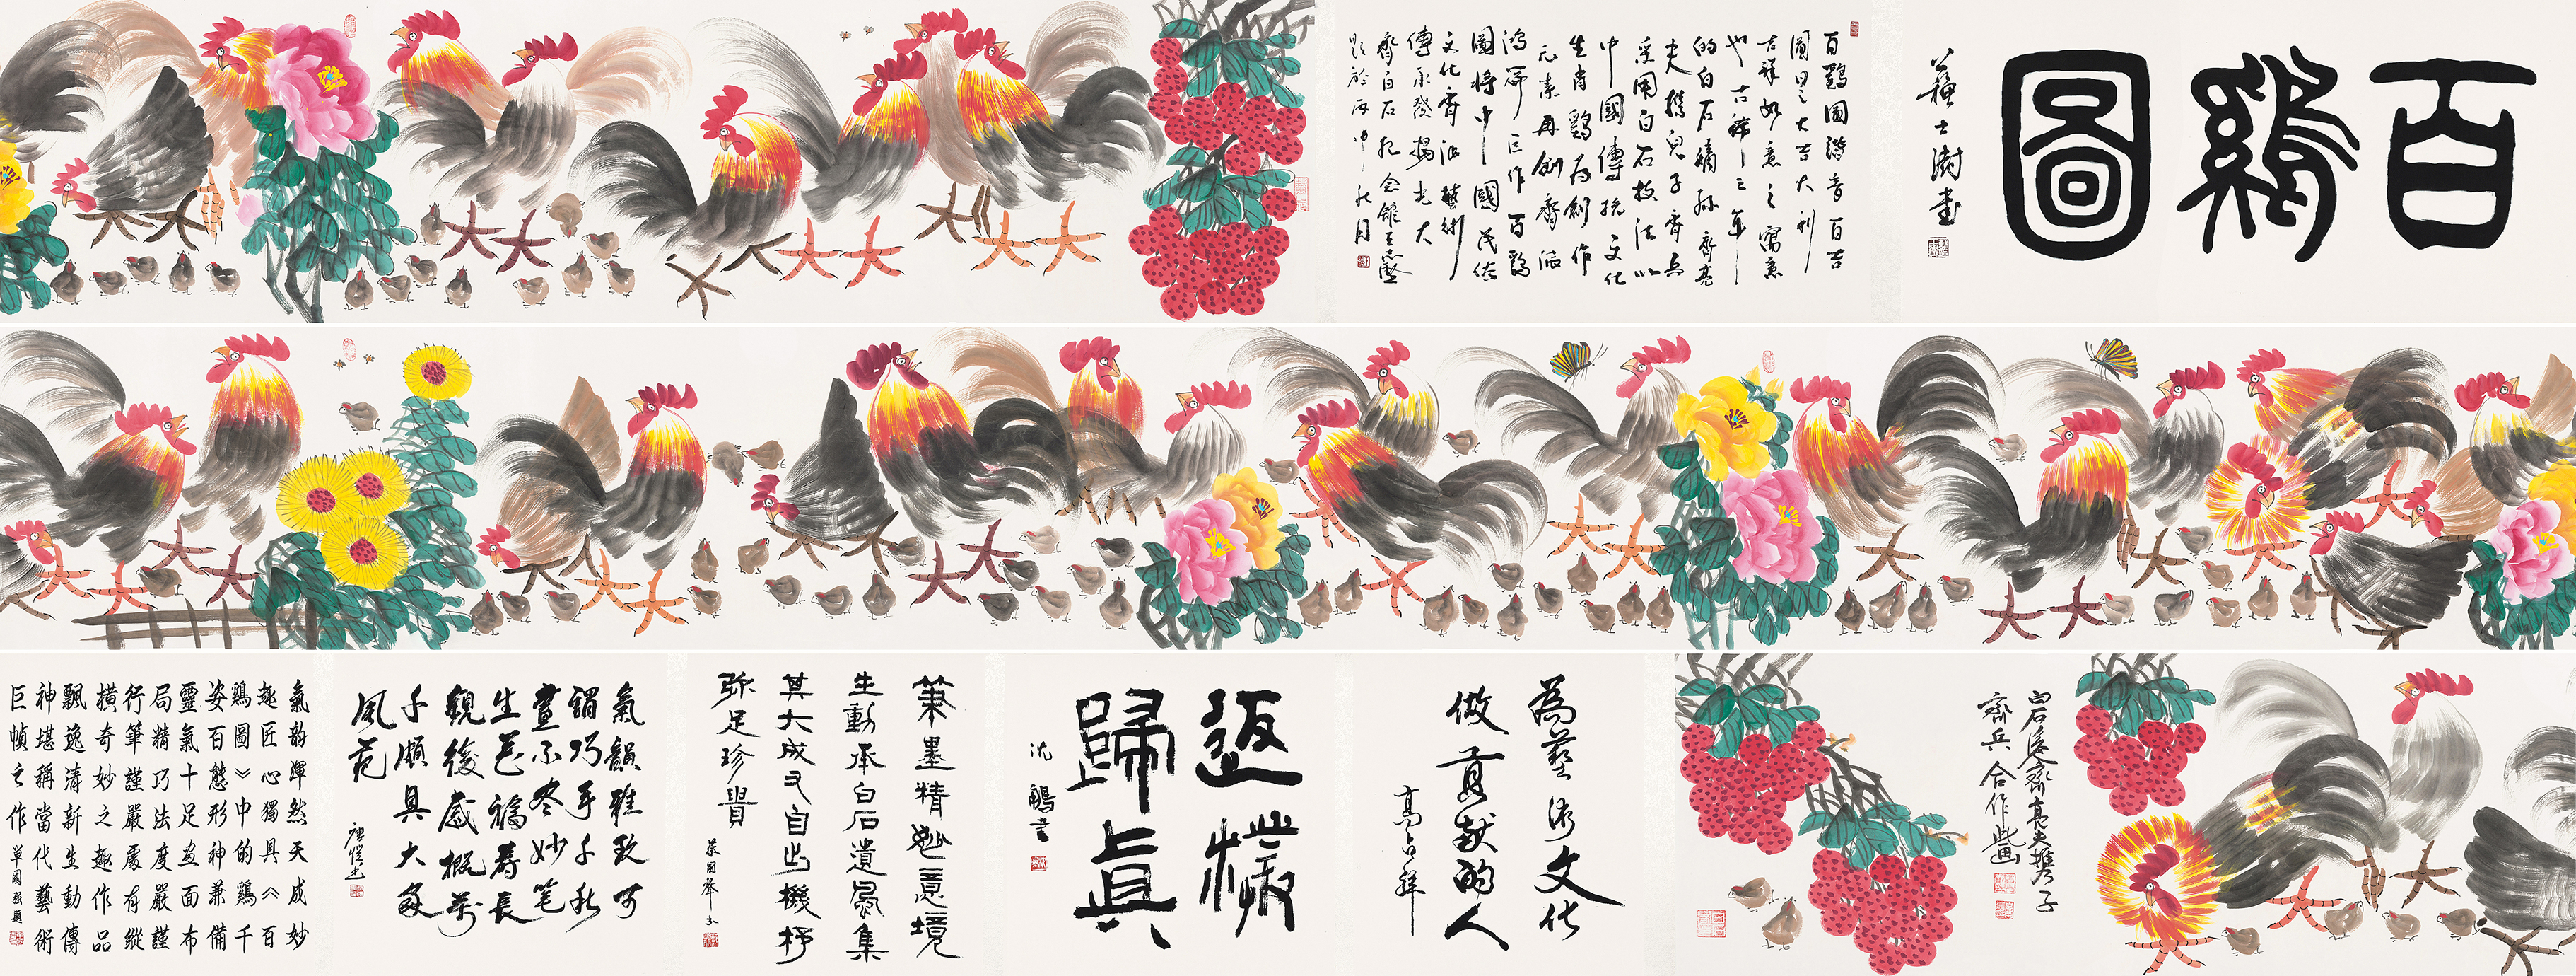 百鷄圖
蘇士澍書
百鷄圖諧音百吉
圖曰之大吉大利
吉祥如意之寓意
也古稀之年
的白石嫡孫齊亮
夫携兒子齊兵
采用白石技法以
中國傳統文化
生肖鷄爲創作
元素再創齊派
鴻篇巨作百鷄
圖將中國民俗
文化齊派藝術
傳承發揚光大
齊白石紀念館王志堅
題於丙申秋月
白石后齊亮夫携子
齊兵合作此畫
為藝術文化
做貢獻的人
高占祥
返樸
歸真
沈鵬書
筆墨精妙意境
生動承白石遺風集
其大成又自出機杼
弥足珍貴
氣韻雅致可
謂巧手千秋
畫不盡妙笔
生花福壽長
觀後感概萬
千頗具大家
風范
氣韵渾然天成妙
趣匠心獨具《百
鷄圖》中的鷄千
姿百態形神兼備
靈氣十足畫面布
局精巧法度嚴謹
行筆謹嚴處有縱
橫奇妙之趣作品
飄逸清新生動傳
神堪稱當代藝術
巨幀之作 單國强題